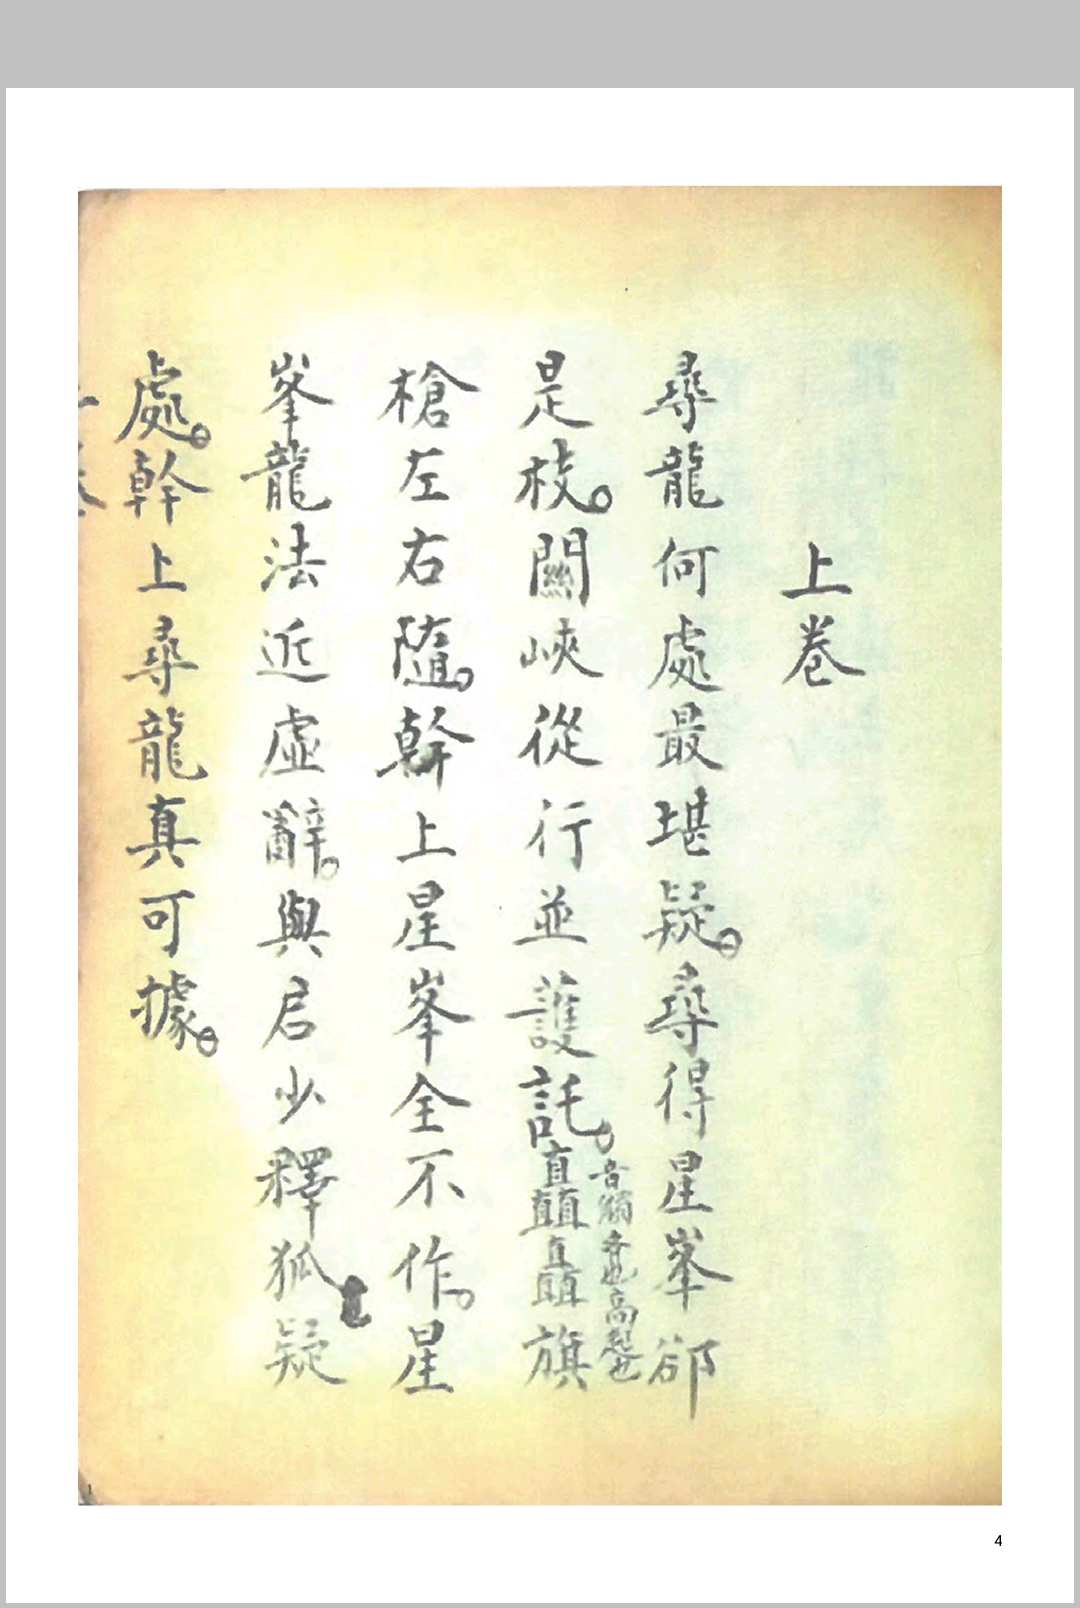 上卷
尋龍何處最堪疑。尋得星峯郤
是枝。關峽從行並護託。矗矗旗
音觸 齊也高起也
槍左右隨。幹上星峯全不作。星
峯龍法近虛辭。與君少釋狐疑
處。幹上尋龍真可據。
4